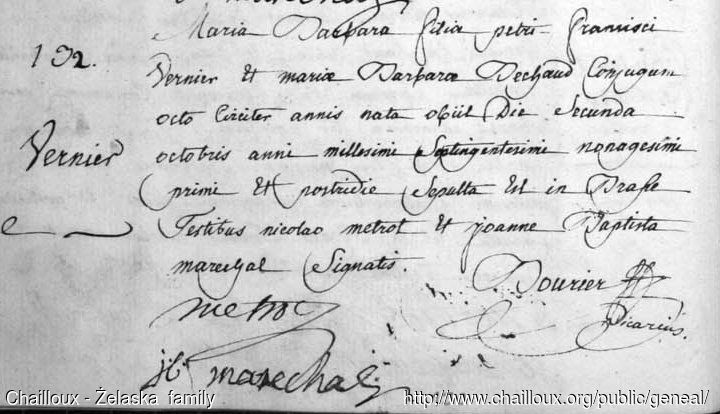 Maria Barbara filia petri francisci
132.
Vernier Et mariæ Barbaræ Bechaud Conjugum
octo Circiter annis nata obiit Die Secunda
Vernier
octobris anni millesimi Septingentesimi nonagesimi
primi Et postridie Sepulta Est in
Testibus nicolao metrot Et joanne Baptista
marechal Signatis.
Bourier
Vicarius.
metrot
marechal
Chailloux - Żelaska family
http://www.chailloux.org/public/geneal/